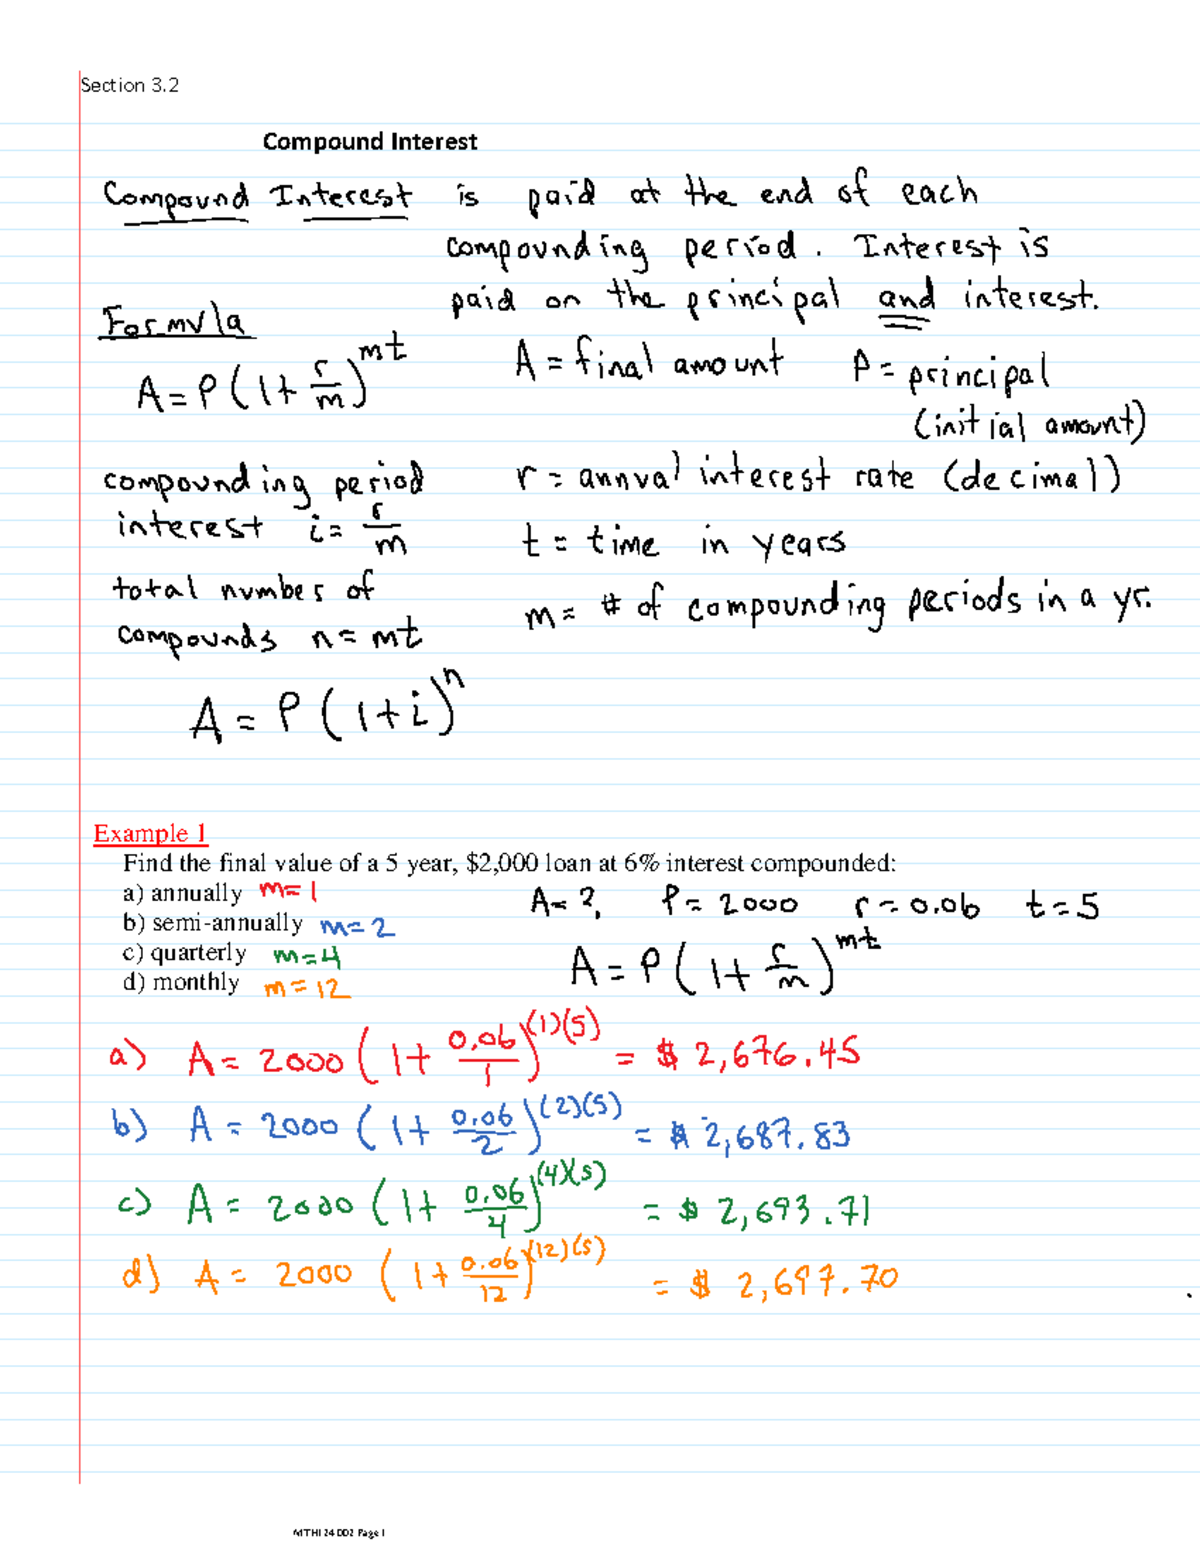 Section 3.2
Compound Interest
Compound Interest is paid at the end of each
compounding period. Interest is
paid on the principal and interest.
Formula
A = P(1 + r/m)^mt
A = final amount P = principal
(initial amount)
compounding period
interest i = r/m
r = annual interest rate (decimal)
t = time in years
total number of
compounds n = mt
m = # of compounding periods in a yr.
A = P(1+i)^n
Example 1
Find the final value of a 5 year, $2,000 loan at 6% interest compounded:
a) annually m=1
b) semi-annually m=2
c) quarterly m=4
d) monthly m=12
A=? P=2000 r=0.06 t=5
A = P(1 + r/m)^mt
a) A = 2000(1 + 0.06/1)^(1)(5) = $2,676.45
b) A = 2000(1 + 0.06/2)^(2)(5) = $2,687.83
c) A = 2000(1 + 0.06/4)^(4)(5) = $2,693.71
d) A = 2000(1 + 0.06/12)^(12)(5) = $2,697.70
MTH124 002 Page 1